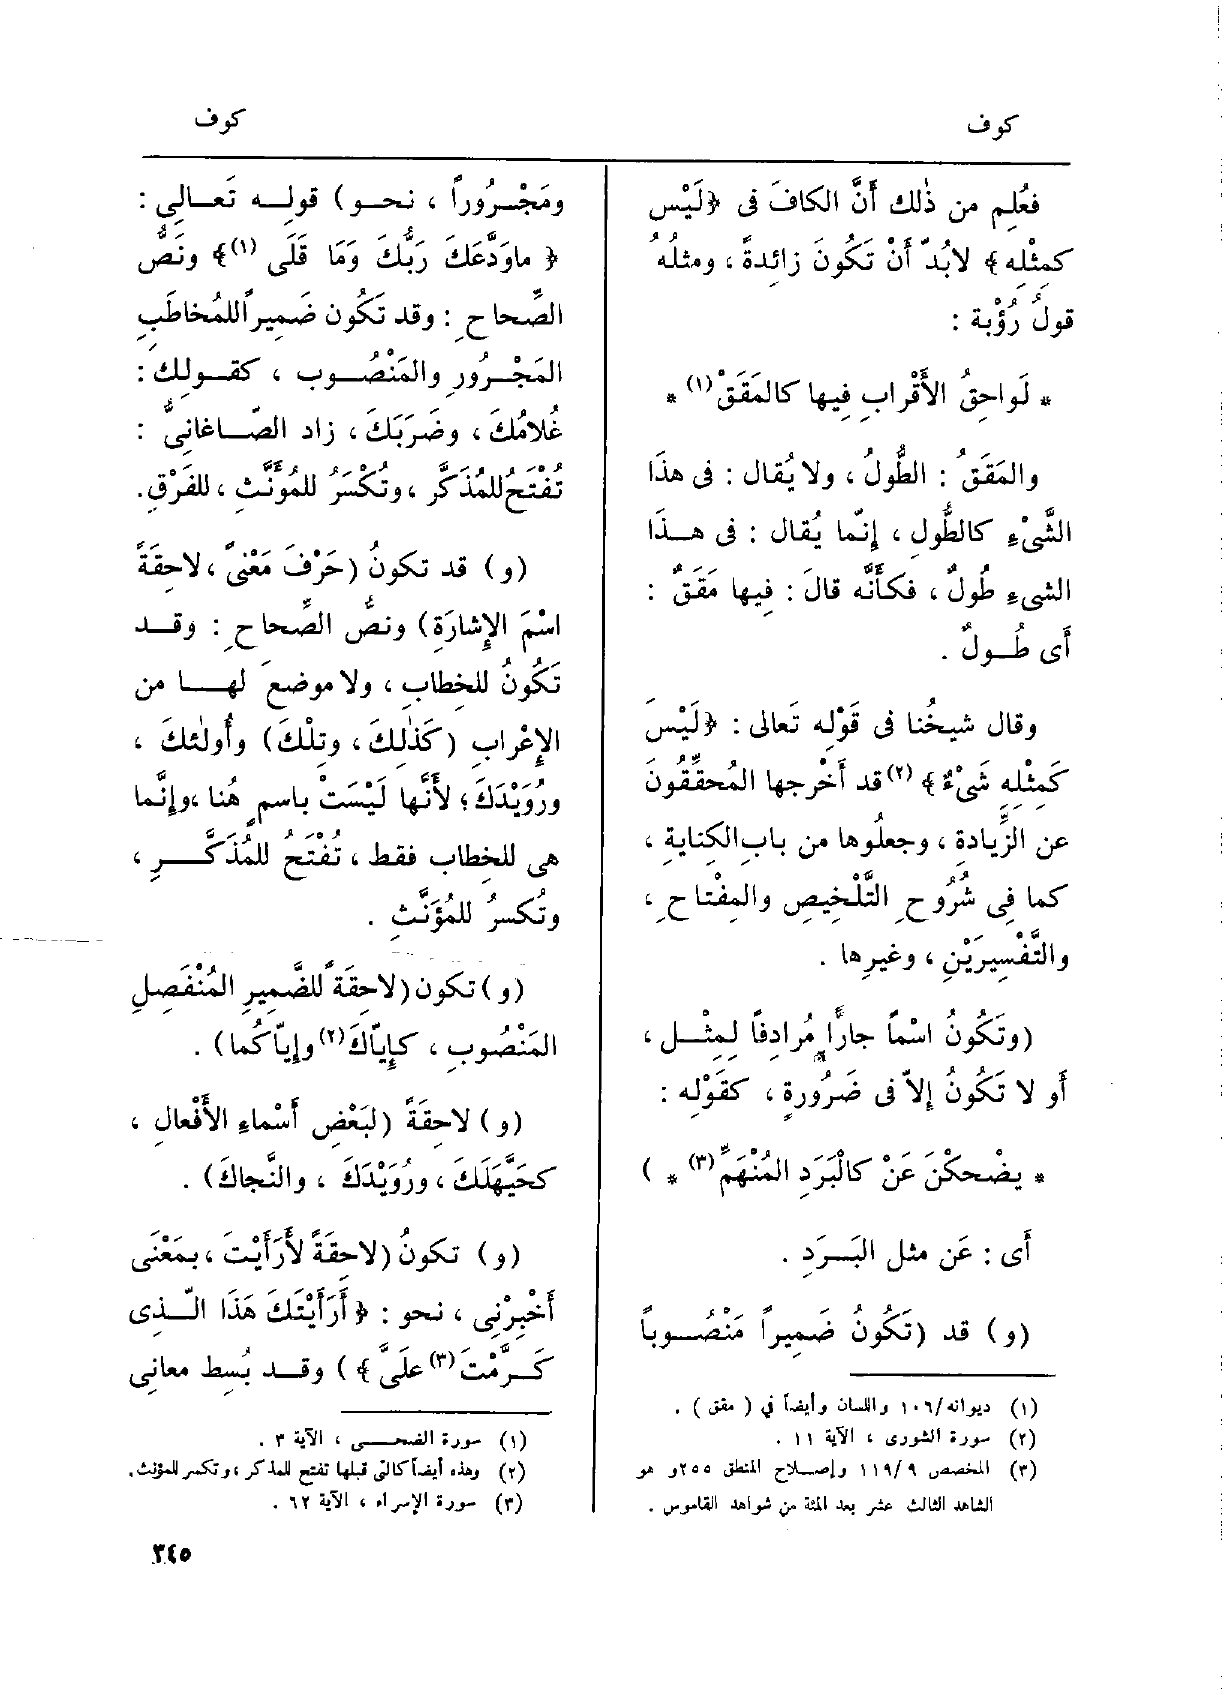 كوف
كوف
فعُلِم من ذٰلك أَنَّ الكافَ فى ﴿لَيْسَ
كمثْلِه﴾ لابُدّ أَنْ تَكُونَ زائِدةً ، ومثلُهُ
قولُ رُؤْبة :
* لَواحِقُ الأَقْرابِ فِيها كالمَقَقْ (١) *
والمَقَقُ : الطُّولُ ، ولا يُقال : فى هذَا
الشَّىْءِ كالطُّولِ ، إِنّما يُقال : فى هــذَا
الشىءِ طُولٌ ، فكأَنَّه قالَ : فِيها مَقَقٌ :
أَى طُــولٌ .
وقال شيخُنا فى قَوْلِه تَعالى : ﴿لَيْسَ
كَمِثْلِهِ شَىْءٌ﴾ (٢) قد أَخْرجها المُحقِّقُونَ
عن الزِّيادةِ ، وجعلُوها من بابِ الكِنايةِ ،
كما فِى شُرُوحِ التَّلْخِيصِ والمِفْتاحِ ،
والتَّفْسِيرَيْنِ ، وغيرِها .
(وتَكُونُ اسْماً جارًّا مُرادِفاً لِمِثْــلِ ،
أَو لا تَكُونُ إِلاّ فى ضَرُورةٍ ، كقَوْلِه :
* يضْحكْنَ عَنْ كالْبَرَدِ المُنْهَمِّ (٣) * )
أَى : عَن مثل البَــرَدِ .
(و) قد (تَكُونُ ضَمِيراً مَنْصُــوباً
(١) ديوانه/١٠٦ واللسان وأيضاً في ( مقق ) .
(٢) سورة الشورى ، الآية ١١ .
(٣) المخصص ١١٩/٩ وإصــلاح المنطق ٢٥٥ و هو
الشاهد الثالث عشر بعد المئة من شواهد القاموس .
ومَجْــرُوراً ، نحــو) قولِــه تَعــالِى :
﴿ ماوَدَّعَكَ رَبُّكَ وَمَا قَلَى (١)﴾ ونَصُّ
الصِّحاحِ : وقد تَكُون ضَمِيراًللمُخاطَبِ
المَجْــرُورِ والمَنْصُــوبِ ، كقــولِك :
غُلامُكَ ، وضَرَبَكَ ، زاد الصّــاغانِىُّ :
تُفْتَحُ للمُذَكَّر ، وتُكْسَرُ للمُؤَنَّثِ ، للفَرْقِ.
(و) قد تكونُ (حَرْفَ مَعْنىً ، لاحِقَةً
اسْمَ الإِشارَةِ) ونصُّ الصِّحاحِ : وقــد
تَكُونُ للخِطابِ ، ولا موضعَ لهــا من
الإِعْرابِ (كَذٰلِكَ ، وتِلْكَ) وأُولٰئكَ ،
ورُوَيْدَكَ ؛ لأَنَّها لَيْسَتْ باسمٍ هُنا ، وإِنَّما
هى للخِطاب فقط ، تُفْتَحُ للمُذَكَّــرِ ،
وتُكسرُ للمُؤَنَّثِ .
(و) تكون (لاحِقَةً للضَّمِيرِ المُنْفَصِلِ
المَنْصُوبِ ، كإِيّاكَ (٢) وإِيّاكُما) .
(و) لاحِقَةً (لبَعْضِ أَسْماءِ الأَفْعالِ ،
كحَيَّهَلَكَ ، ورُوَيْدَكَ ، والنَّجاكَ) .
(و) تكونُ (لاحِقَةً لأَرَأَيْتَ ، بمَعْنَى
أَخْبِرْنِى ، نحو : ﴿ أَرَأَيْتَكَ هَذَا الَّــذِى
كَــرَّمْتَ (٣) عَلَىَّ ﴾ ) وقــد بُسط معانِى
(١) سورة الضحــى ، الآية ٣ .
(٢) وهذه أيضاً كالتى قبلها تفتح للمذكر ، وتكسر للمؤنث.
(٣) سورة الإسراء ، الآية ٦٢ .
٣٤٥